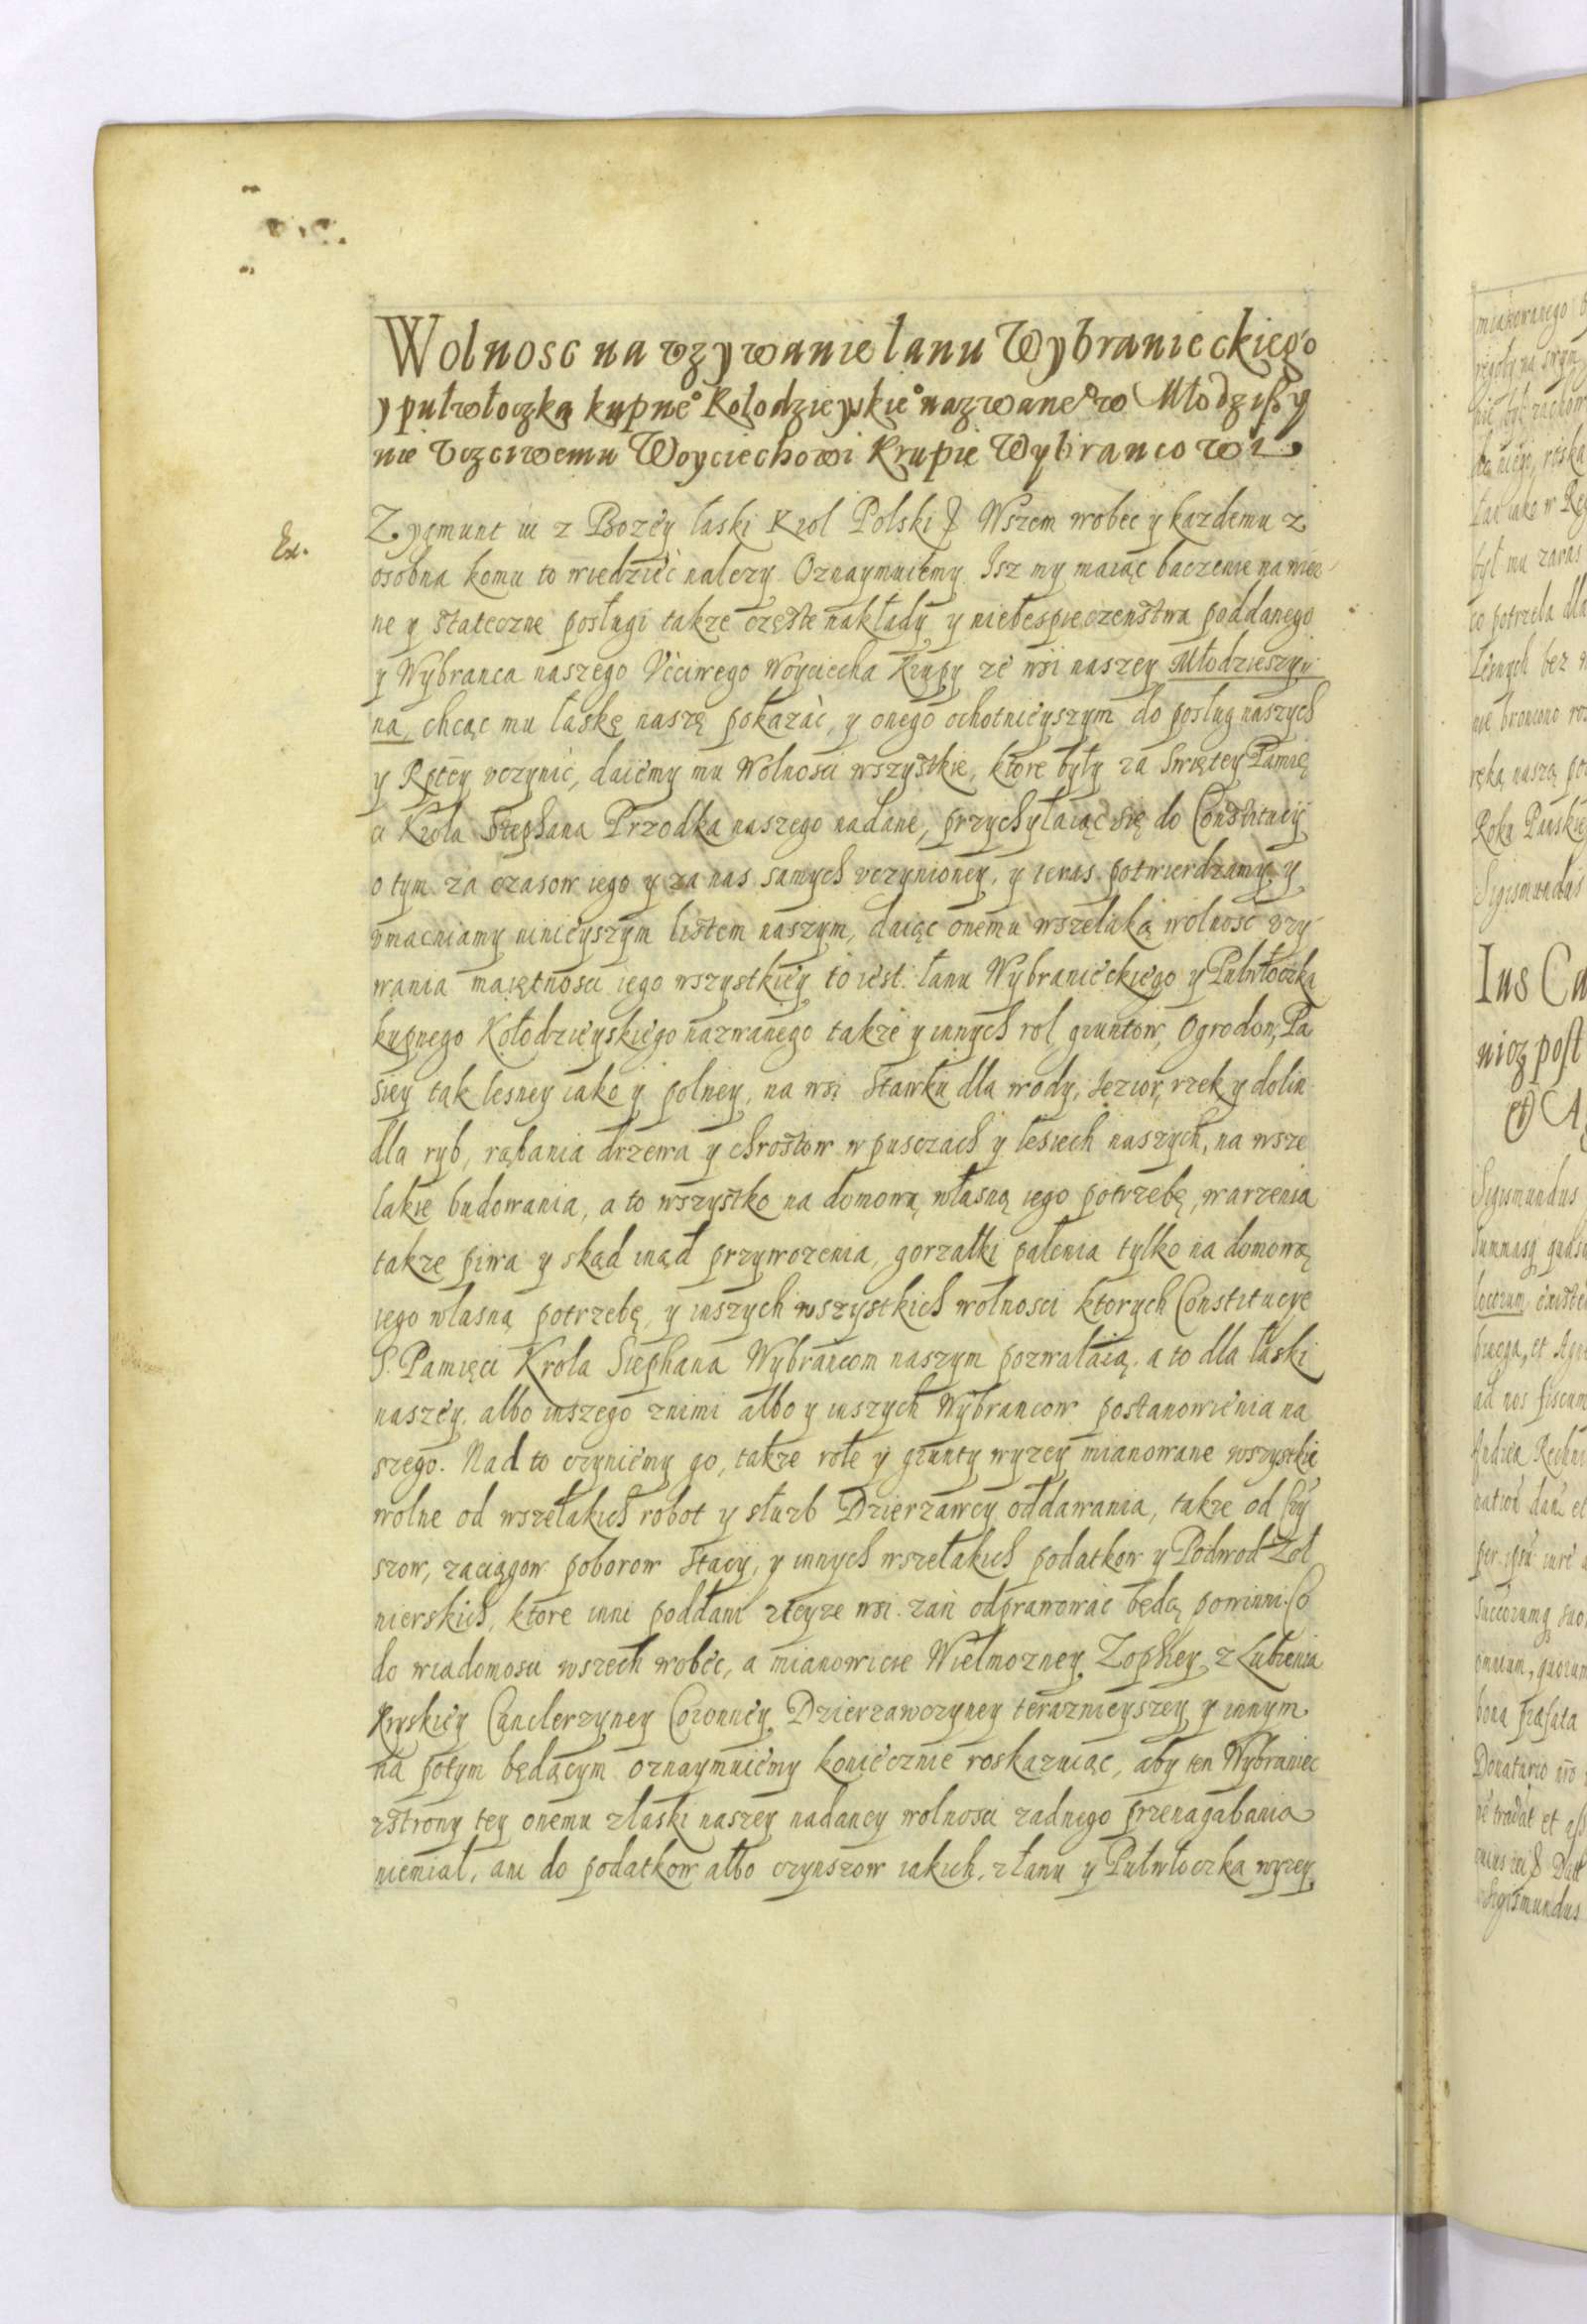 Wolnosc na vzywanie łanu Wybranieckiego
y pułwłoczka kupne° Kołodzieyskie° nazwane° w Młodzißy
nie Vczciwemu Woyciechowi Krupie Wybrancowi
Ex.
Zygmunt iii z Bozey łaski Krol Polski & Wszem wobec y kazdemu z
osobna komu to wiedziec nalezy Oznaymuiemy Isz my maiąc baczenie na wier-
ne y stateczne posługi takze częste nakłady y niebespieczenstwa poddanego
y Wybranca naszego Vcciwego Woyciecha Krupy ze wsi naszey Młodzieszyi
na, chcąc mu łaskę naszę pokazac, y onego ochotnieyszym do posług naszych
y Rzecy vczynic, daiemy mu Wolnosci wszystkie, ktore były za Swiętey Pamię
ci Krola Stephana Przodka naszego nadane, przychyłaiąc się do Constitucij
o tym za czasow iego y za nas samych vczynioney, y teras potwierdzamy y
vmacniamy ninieyszym listem naszym, daiąc onemu wszelaką wolnosc vzy-
wania maiętnosci iego wszystkiey to iest łanu Wybranieckiego y Pułwłoczka
kupnego Kołodzieyskiego nazwanego takze y innych rol, gruntow, Ogrodow, Pa
siey tak lesney iako y polney, na wsi stawku dla wody, Jezior, rzek y dolin
dla ryb, rąbania drzewa y chrostow w pusczach y lesiech naszych, na wsze
lakie budowania, a to wszystko na domową własną iego potrzebę, warzenia
takze piwa y skąd inąd przywozenia, gorzałki palenia tylko na domową
iego własną potrzebę, y inszych wszystkich wolnosci ktorych Constitucye
S. Pamięci Krola Stephana Wybrancom naszym pozwalaią, a to dla łaski
naszey, albo inszego znimi albo y inszych Wybrancow postanowienia na
szego. Nad to czyniemy go, takze role y grunty wyzey mianowane wszystkie
wolne od wszelakich robot y słuzb Dzierzawcy oddawania, takze od Czy
szow, zaciągow poborow Stacij, y innych wszelakich podatkow y Podwod Zoł
nierskich, ktore inni poddani zteyze wsi zan odprawowac będą powinni. Co
do wiadomosci wszech wobec, a mianowicie Wielmozney Zophey z Lubienia
Kryskiey Canclerzyney Coronney Dzierzawczyney teraznieyszey y innym
na potym będącym oznaymuiemy koniecznie roskazuiąc, aby ten Wybraniec
zstrony tey onemu złaski naszey nadaney wolnosci zadnego przenagabania
niemiał, ani do podatkow albo czynszow iakich, złanu y Pułwłoczka wyzey